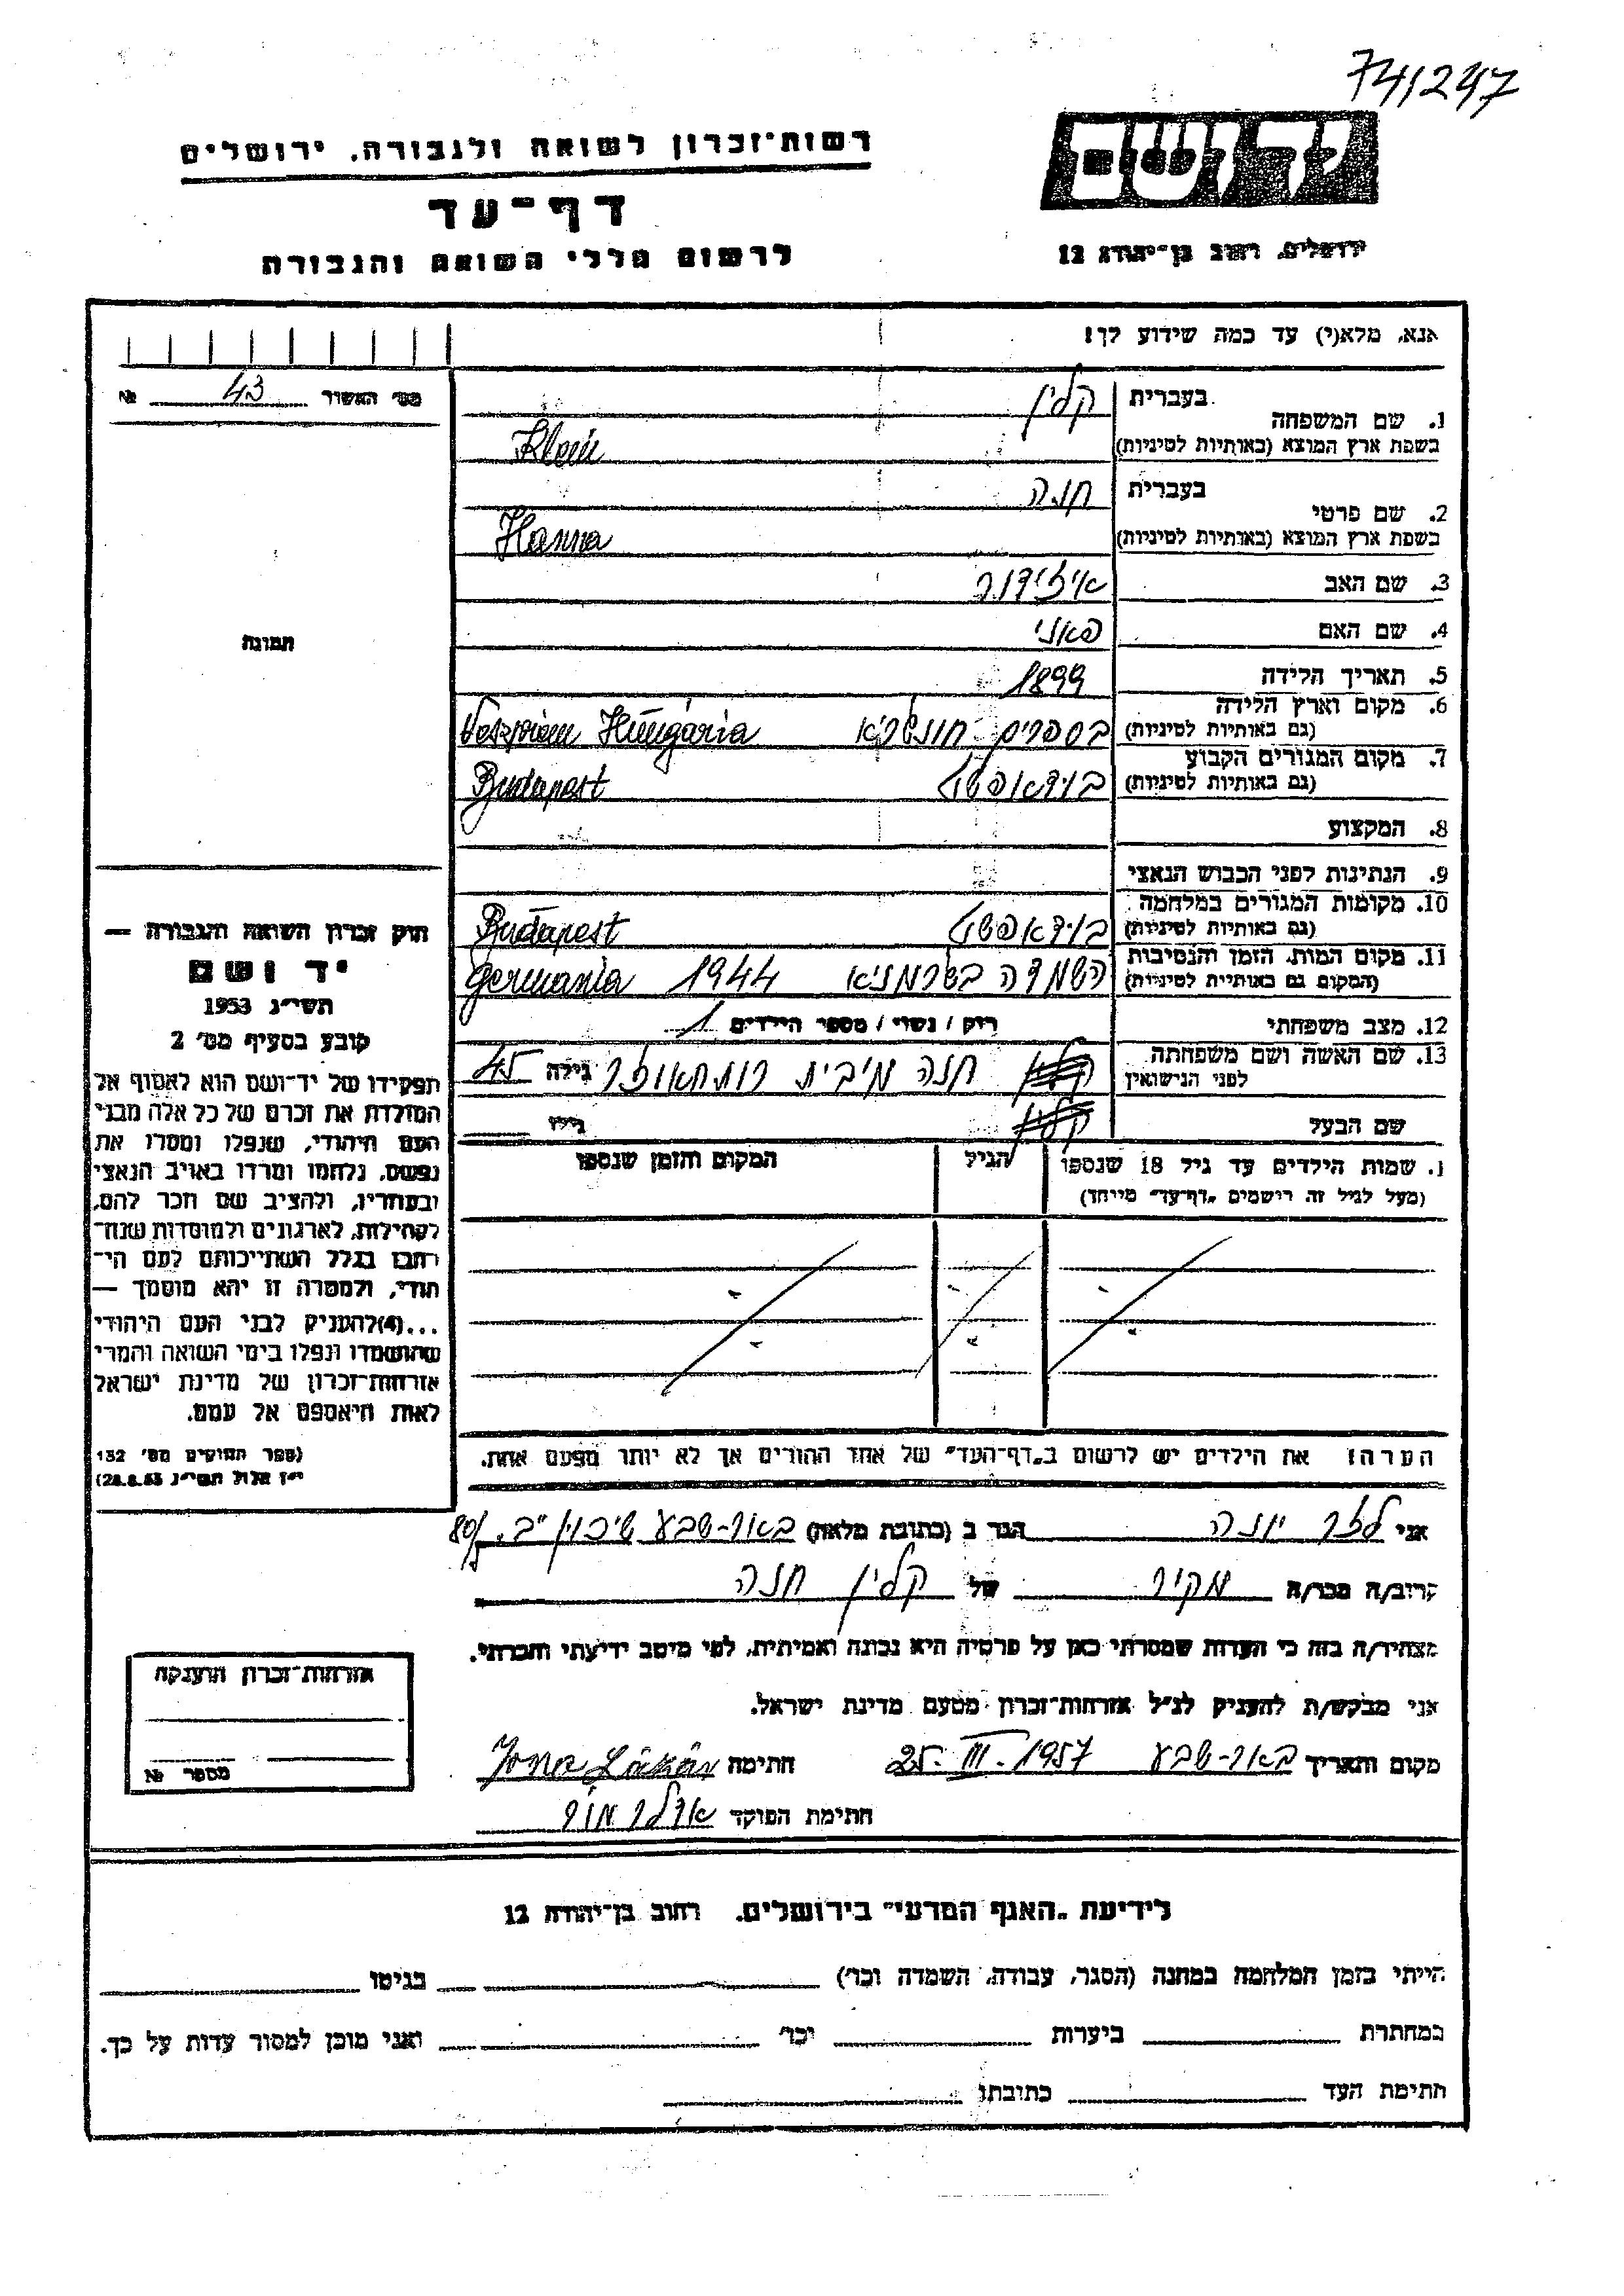 741247
רשות־זכרון לשואה ולגבורה, ירושלים
יד ושם
דף־עד
לרשום חללי השואה והגבורה
ירושלים, רחוב בן־יהודה 12
אנא, מלא(י) עד כמה שידוע לך!
מס׳ האשור 43 №
1. שם המשפחה בעברית קליין
בשפת ארץ המוצא (באותיות לטיניות) Klein
2. שם פרטי בעברית חנה
בשפת ארץ המוצא (באותיות לטיניות) Hanna
3. שם האב איזידור
4. שם האם פאני
תמונה
5. תאריך הלידה 1899
6. מקום וארץ הלידה
(גם באותיות לטיניות) בספרים - חונגריא Veszprém Hungária
7. מקום המגורים הקבוע
(גם באותיות לטיניות) בודאפשט Budapest
8. המקצוע
9. הנתינות לפני הכבוש הנאצי
10. מקומות המגורים במלחמה
(גם באותיות לטיניות) בודאפשט Budapest
11. מקום המות, הזמן והנסיבות
(המקום גם באותיות לטיניות) השמדה בגרמניא 1944 Germania
12. מצב משפחתי רוק / נשוי / מספר הילדים 1
13. שם האשה ושם משפחתה
לפני הנישואין חנה מבית רוטהאוזר גילה 45
שם הבעל גילו
שמות הילדים עד גיל 18 שנספו הגיל המקום והזמן שנספו
(מעל לגיל זה רישמים „דף־עד״ מיוחד)
חוק זכרון השואה והגבורה —
יד ושם
תשי״ג 1953
קובע בסעיף מס׳ 2
תפקידו של יד־ושם הוא לאסוף אל
המולדת את זכרם של כל אלה מבני
העם היהודי, שנפלו ומסרו את
נפשם, נלחמו ומרדו באויב הנאצי
ובעוזריו, ולהציב שם וזכר להם,
לקהילות, לארגונים ולמוסדות שנח־
רבו בגלל השתייכותם לעם הי־
הודי, ולמטרה זו יהא מוסמך —
...(4)להעניק לבני העם היהודי
שהושמדו ונפלו בימי השואה והמרי
אזרחות־זכרון של מדינת ישראל
לאות היאספם אל עמם.
(ספר החוקים מס׳ 132
י״ז אלול תשי״ג 28.8.53)
הערה: את הילדים יש לרשום ב„דף־העד״ של אחד ההורים אך לא יותר מפעם אחת.
אני לזר יונה הגר ב (כתובת מלאה) באר-שבע שיכון ב׳
קרוב/ה מכר/ה מקיר של קליין חנה
מצהיר/ה בזה כי העדות שמסרתי כאן על פרטיה היא נכונה ואמיתית, לפי מיטב ידיעתי והכרתי.
אני מבקש/ת להעניק לנ״ל אזרחות־זכרון מטעם מדינת ישראל.
מקום ותאריך באר-שבע 25. III. 1957 חתימה
חתימת הפוקד אדלר מור
אזרחות־זכרון הוענקה
מספר №
לידיעת „האגף המדעי״ בירושלים, רחוב בן־יהודה 12
הייתי בזמן המלחמה במחנה (הסגר, עבודה, השמדה וכו׳) בגיטו
במחתרת ביערות וכו׳ ואני מוכן למסור עדות על כך.
חתימת העד כתובתו